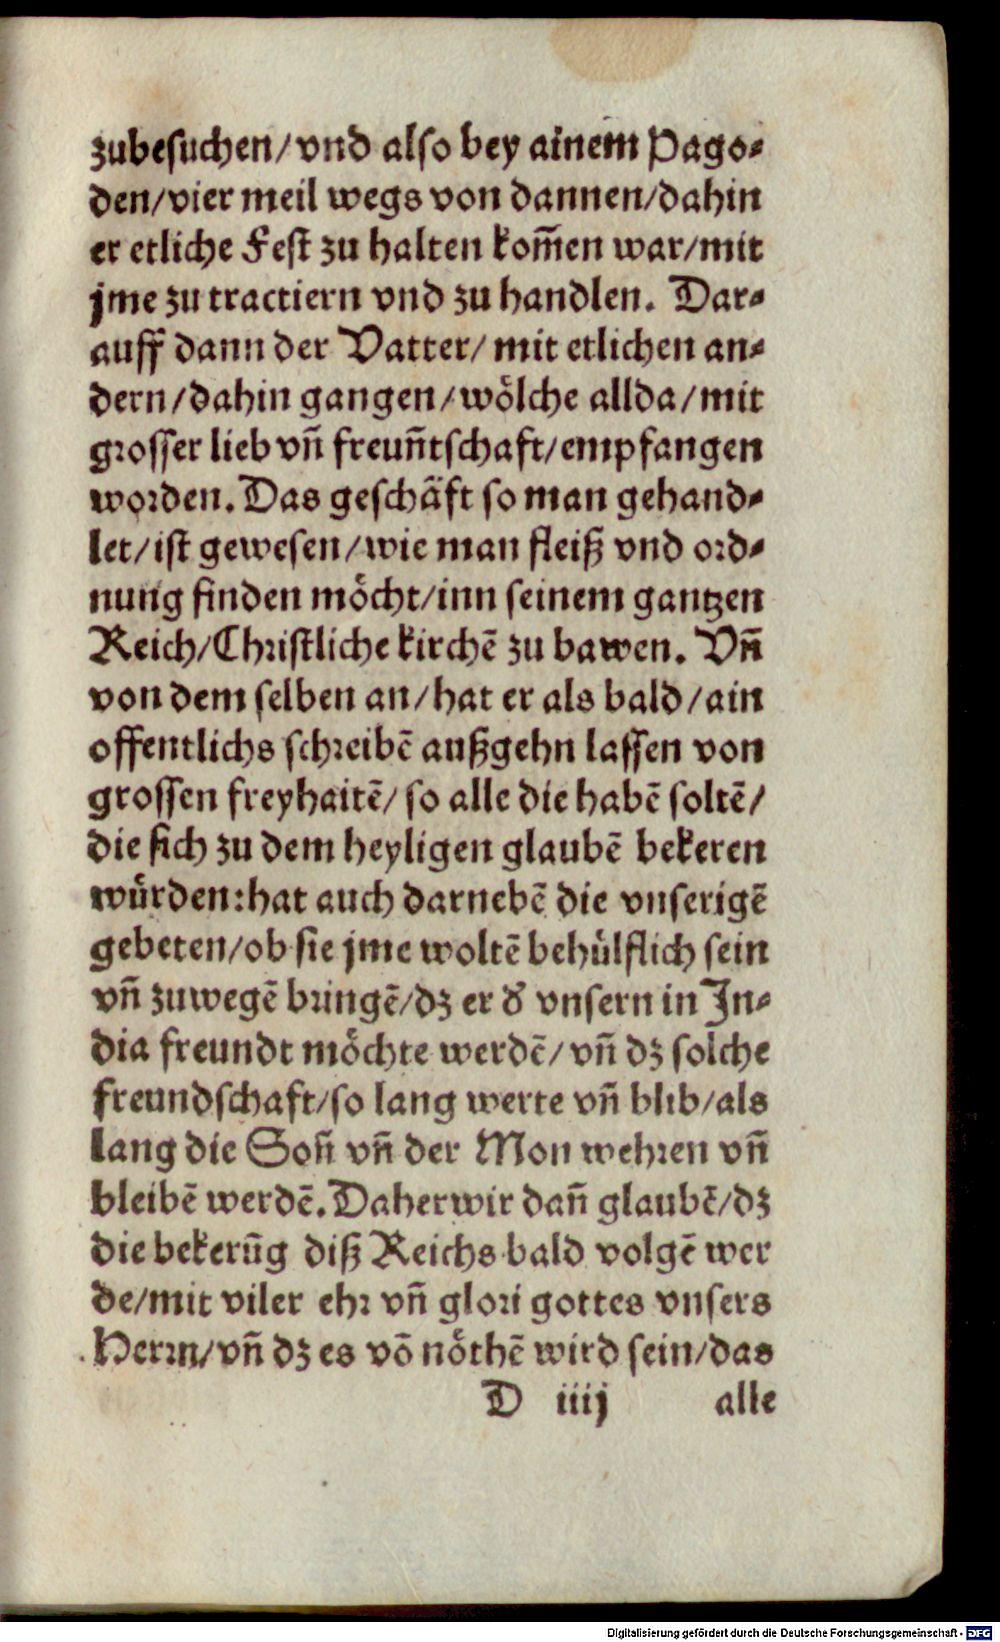 zubesuchen/ vnd also bey ainem Pago⸗
den/vier meil wegs von dannen/dahin
er etliche Fest zu halten kom̃en war/mit
jme zu tractiern vnd zu handlen. Dar⸗
auff dann der Vatter/ mit etlichen an⸗
dern/dahin gangen/ woͤlche allda/mit
grosser lieb vñ freuñtschaft/empfangen
worden. Das geschaͤft so man gehand⸗
let/ist gewesen/wie man fleiß vnd ord⸗
nung finden moͤcht/inn seinem gantzen
Reich/Christliche kirchẽ zu bawen. Vñ
von dem selben an/hat er als bald/ain
offentlichs schreibẽ außgehn lassen von
grossen freyhaitẽ/ so alle die habẽ soltẽ/
die sich zu dem heyligen glaubẽ bekeren
wuͤrden:hat auch darnebẽ die vnserigẽ
gebeten/ob sie jme woltẽ behuͤlflich sein
vñ zuwegẽ bringẽ/dz er d̓ vnsern in In⸗
dia freundt moͤchte werdẽ/vñ dz solche
freundschaft/so lang werte vñ blib/als
lang die Soñ vñ der Mon wehren vñ
bleibẽ werdẽ. Daher wir dañ glaubẽ/dz
die bekerũg diß Reichs bald volgẽ wer
de/mit viler ehr vñ glori gottes vnsers
Herrn/vñ dz es võ noͤthẽ wird sein/das
D iiij alle
Digitalisierung gefördert durch die Deutsche Forschungsgemeinschaft - DFG